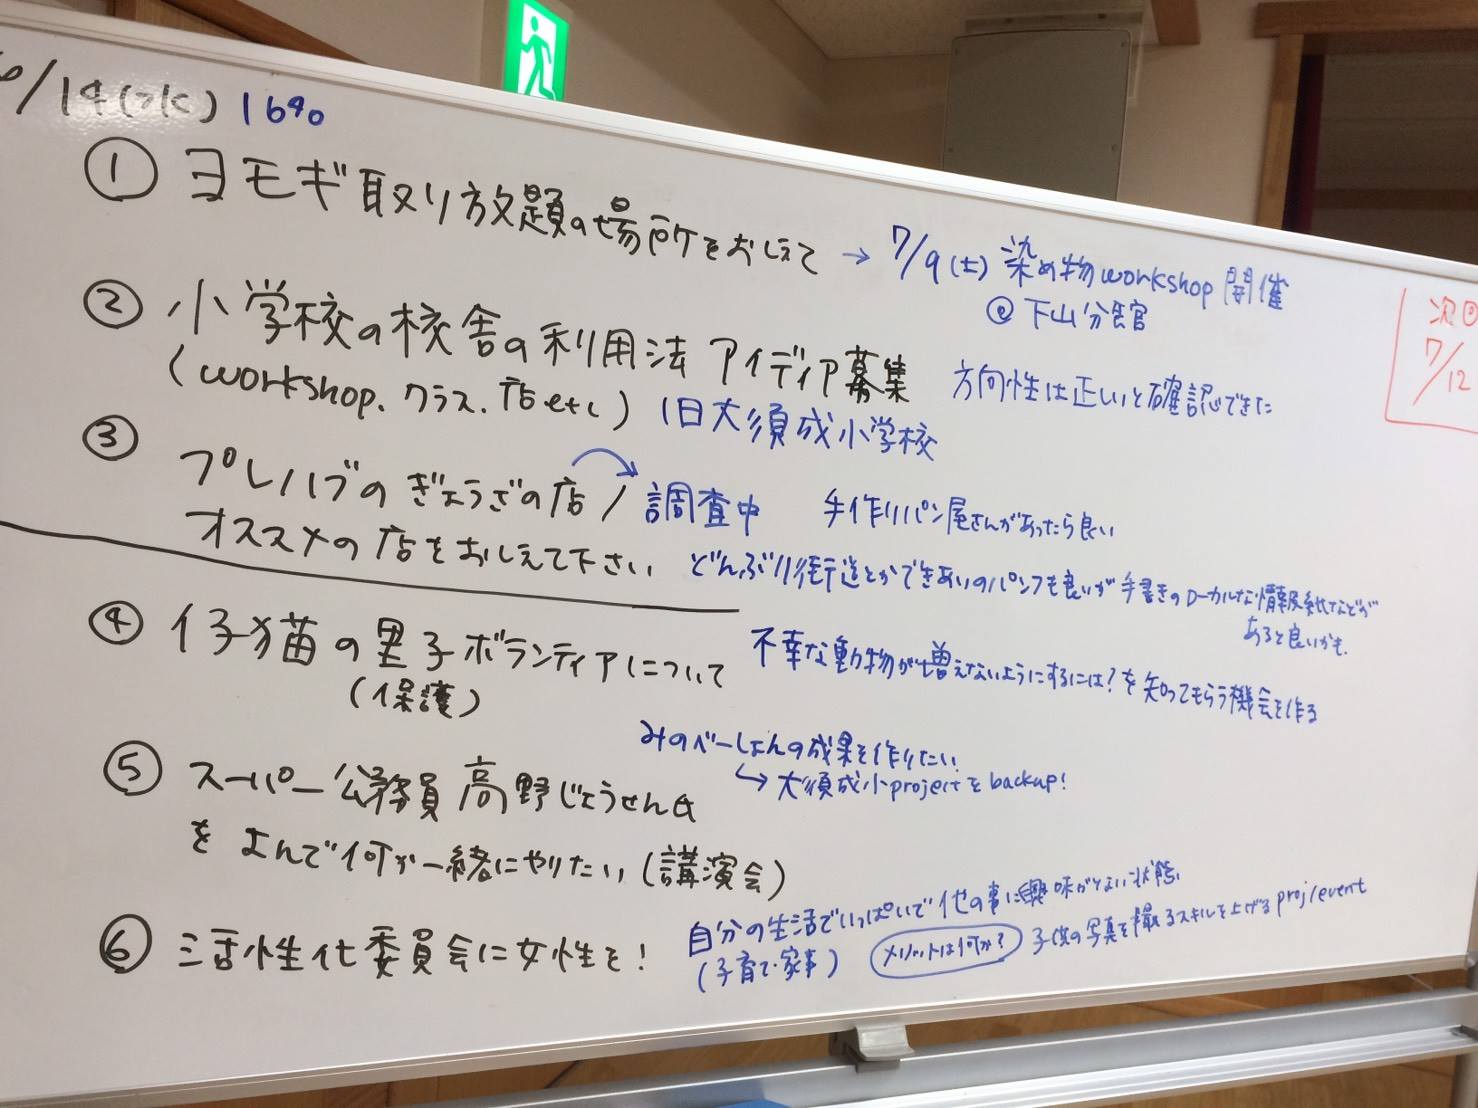 6/14(水) 1640
① ヨモギ取り放題の場所をおしえて → 7/9(土) 染め物workshop 開催
@ 下山分館
② 小学校の校舎の利用法 アイディア募集 方向性は正しいと確認できた
(workshop. クラス. 店etc) 旧大須成小学校
次回
7/12
③ プレハブのぎょうざの店 / 調査中 手作りパン屋さんがあったら良い
オススメの店をおしえて下さい どんぶり街道とかできあいのパンフも良いが手書きのローカルな情報紙などが
あると良いかも.
④ 仔猫の里子ボランティアについて 不幸な動物が増えないようにするには?を知ってもらう機会を作る
(保護)
みのべーしょんの成果を作りたい
↳ 大須成小projectをbackup!
⑤ スーパー公務員 高野じょうせん氏
をよんで何か一緒にやりたい (講演会)
⑥ 活性化委員会に女性を! 自分の生活でいっぱいで他の事に興味がない状態
(子育て・家事) メリットは何か? 子供の写真を撮るスキルを上げるproj/event